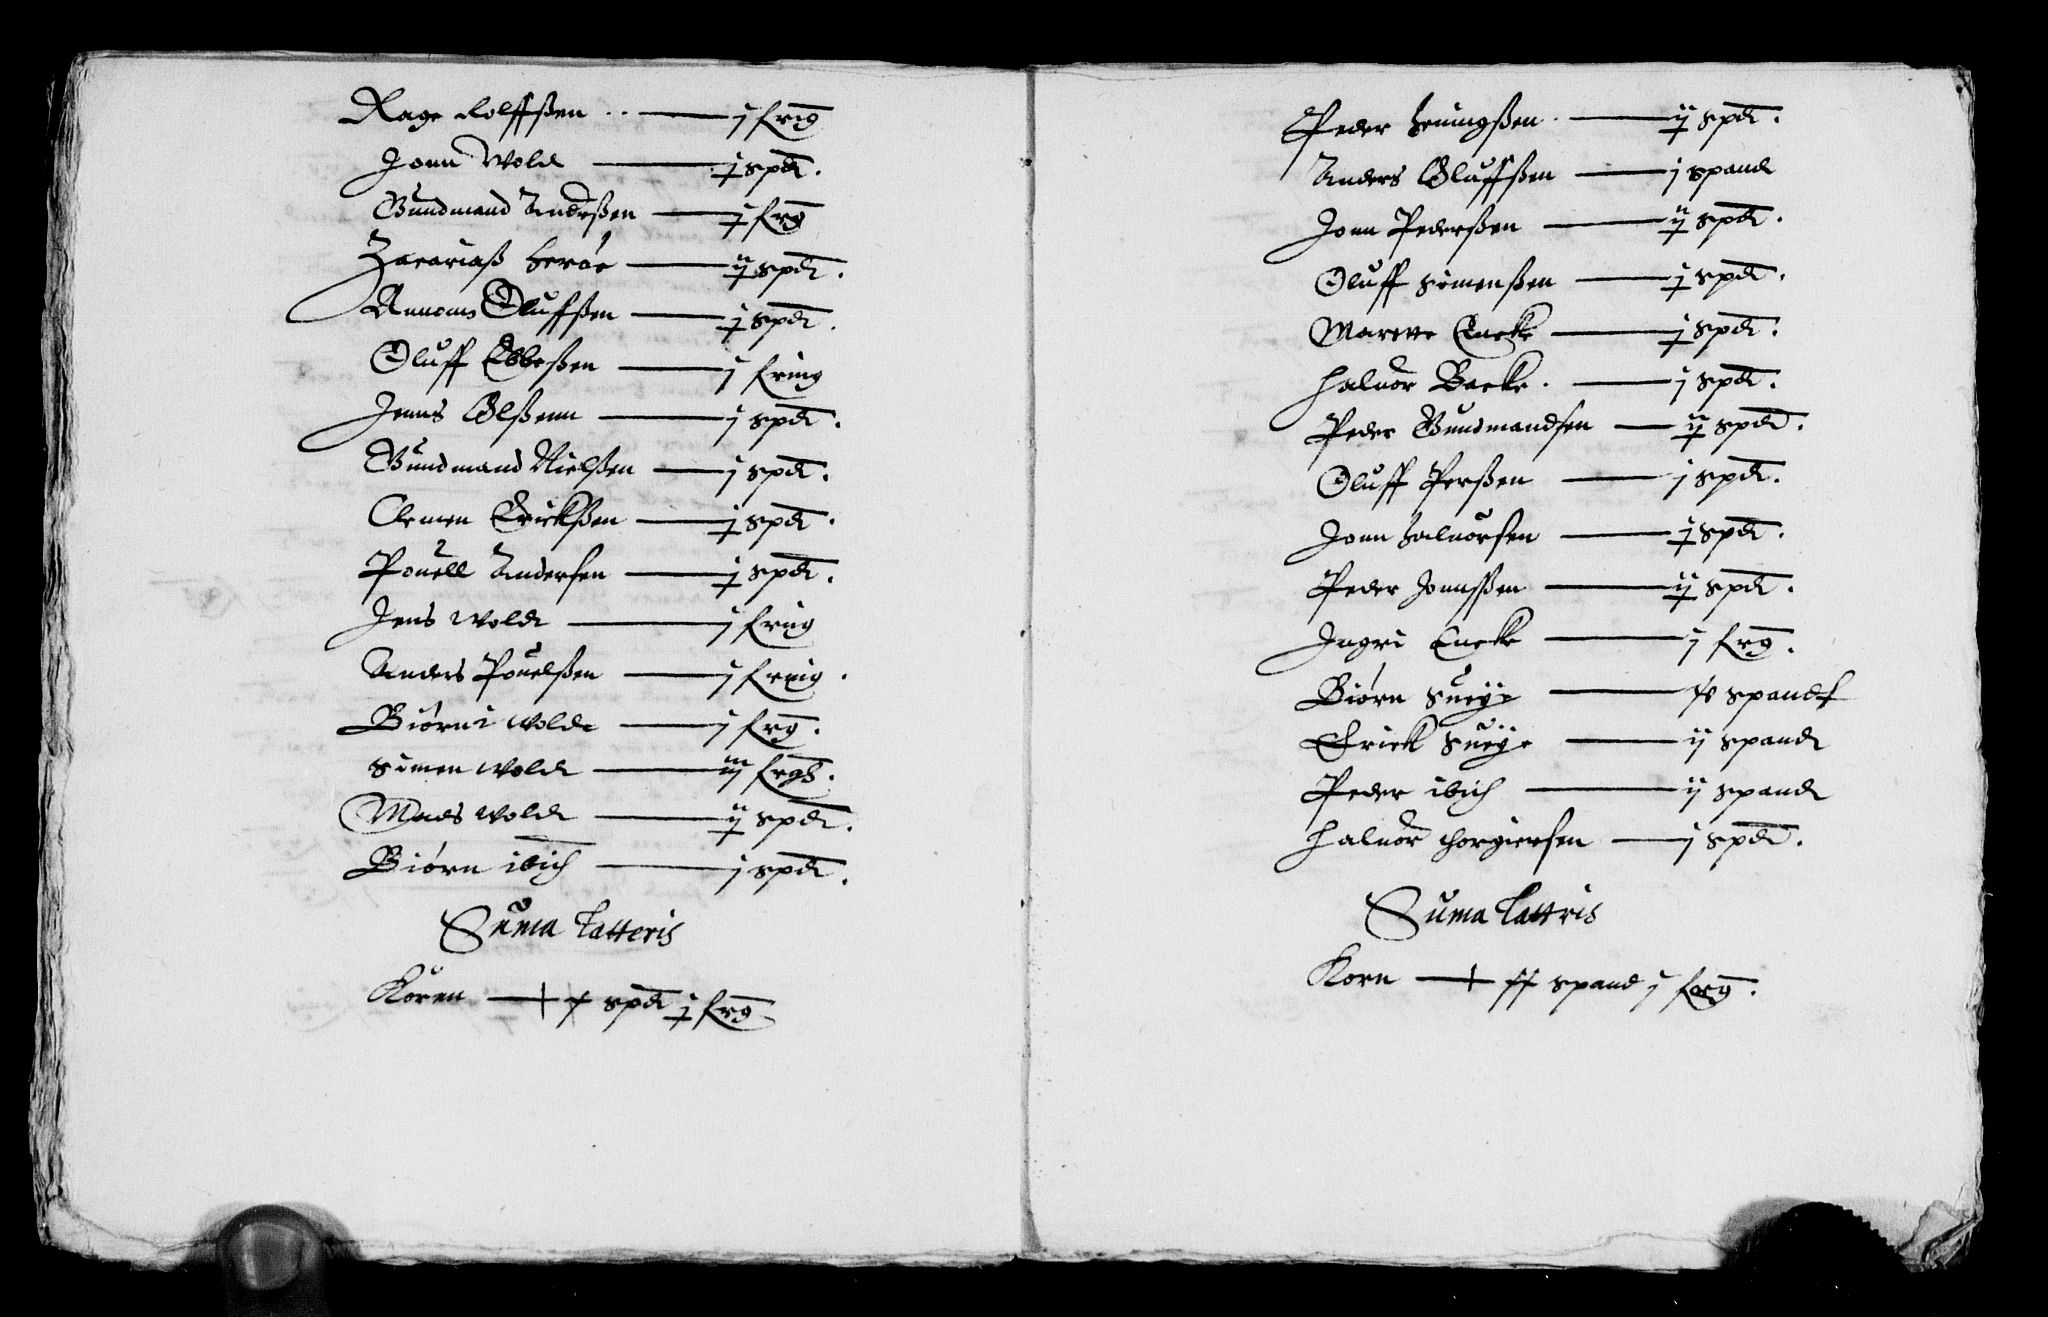 Aage Rolffßen — j fring
Jonn Wold — j spd.
Gundmand Andersßen — j frg
Zacariaß — ij spd.
Oluffßen — j spd.
Oluff Ebbeßen — j fring
Jenns Olßenn — j spd.
Gundmand Nielßen — j spd.
Clemen Erickßen — j spd.
Pouell Andersen — j spd.
Jens wold — j fring
Anders Pouelßen — j fring.
Biørn wold — j frg.
Simen wold — iij frgs.
Mads wold — ij spd.
Biørn ibid — j spd.
Suma Latteris
Koren — spd j frg
Peder Heningßen — ij spd.
Anders Oluffßen — j spand
Jonn Pederßen — ij spd.
Oluff Simenßen — j spd.
Marette Encke — j spd.
Haluor Backe — j spd.
Peder Gundmandsen — ij spd.
Oluff Perßen — j spd.
Jonn Haluorsen — j spd.
Peder Jonnsßen — ij spd.
Ingri Encke — j frg.
Biørn — spand
Erick — ij spand
Peder ibid — ij spand
Haluor Thorgiersen — j spd.
Suma Lattris
Korn — spand j forg.